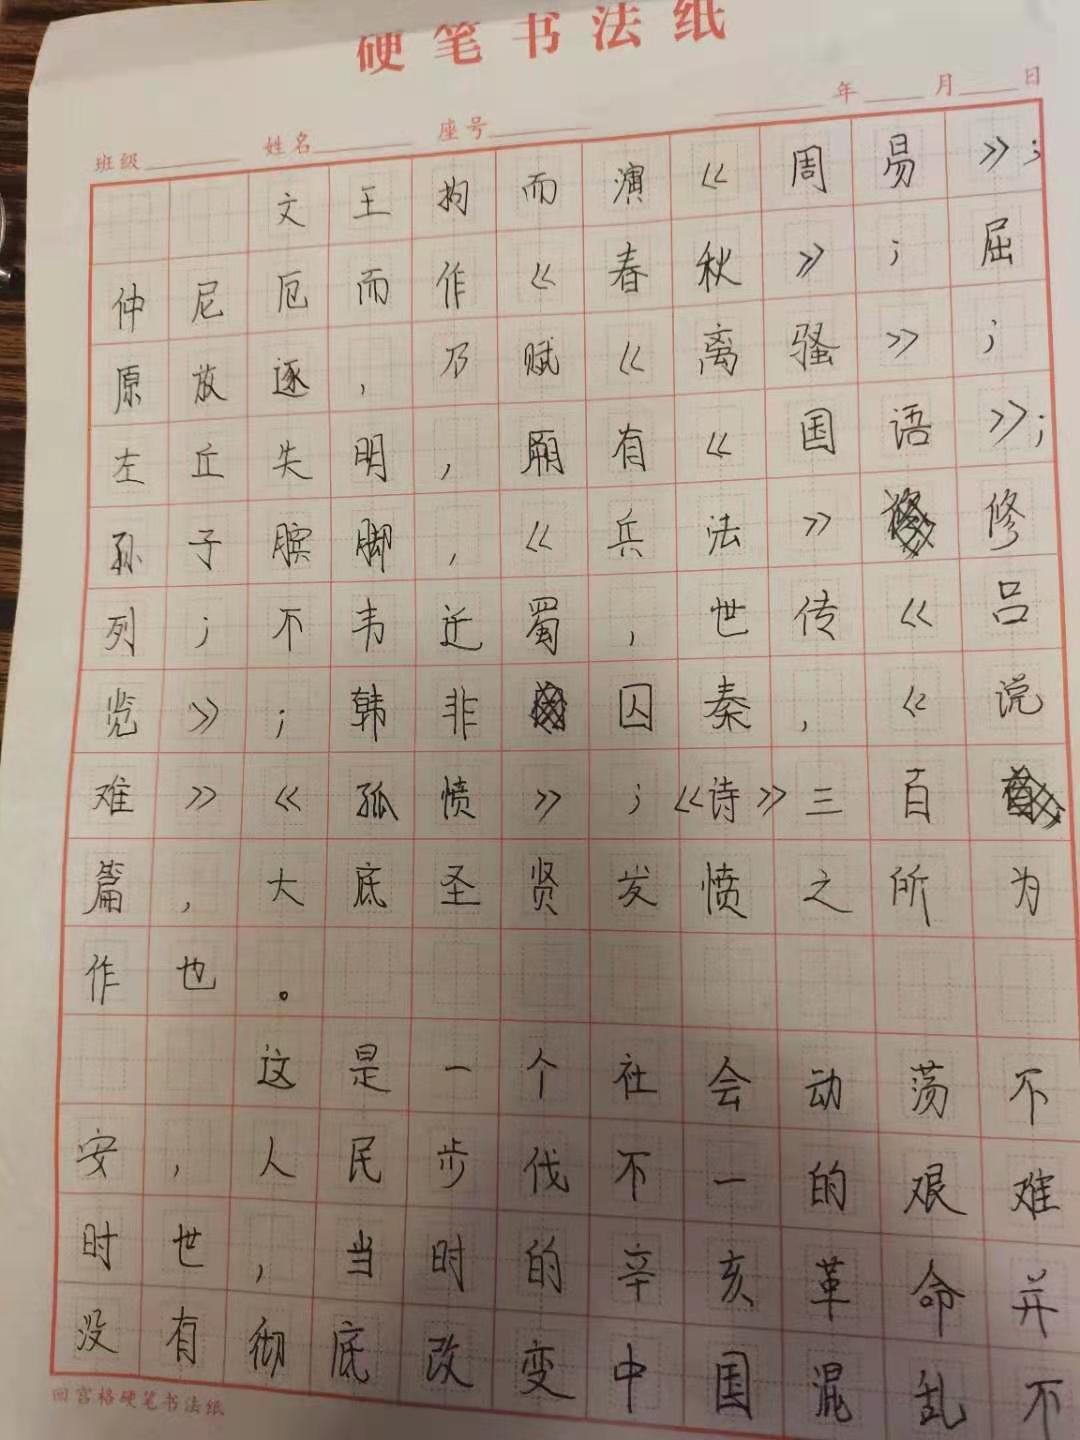 硬笔书法纸
班级 姓名 座号 年 月 日
文王拘而演《周易》;
仲尼厄而作《春秋》;屈
原放逐,乃赋《离骚》;
左丘失明,厥有《国语》;
孙子膑脚,《兵法》修
列;不韦迁蜀,世传《吕
览》;韩非囚秦,《说
难》《孤愤》;《诗》三百
篇,大底圣贤发愤之所为
作也。
这是一个社会动荡不
安,人民步伐不一的艰难
时世,当时的辛亥革命并
没有彻底改变中国混乱不
回宫格硬笔书法纸